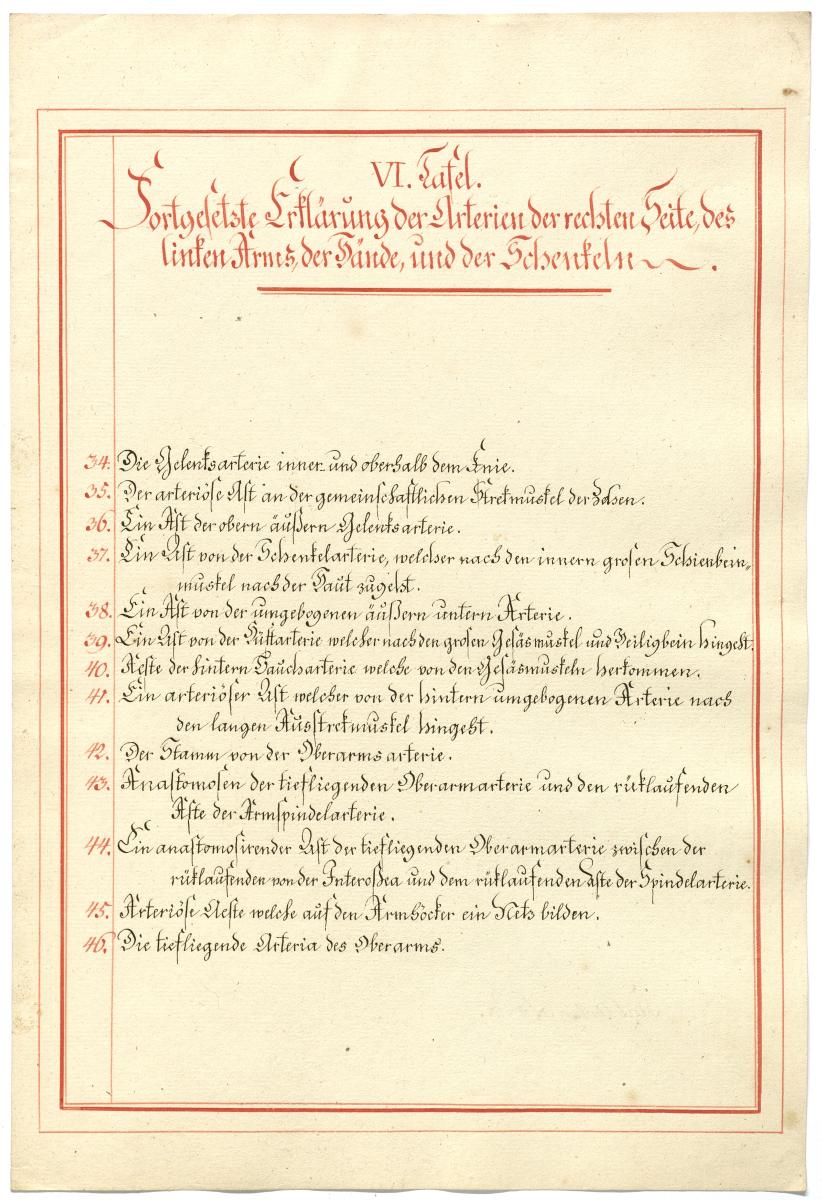 VI. Tafel.
Fortgesetzte Erklärung der Arterien der rechten Seite, des
linken Arms, der Hände, und der Schenkeln.
34. Die Gelenksarterie inner und oberhalb dem Knie.
35. Der arteriöse Ast an der gemeinschaftlichen Strekmuskel der Zehen.
36. Ein Ast der obern äußern Gelenksarterie.
37. Ein Ast von der Schenkelarterie, welcher nach den innern grosen Schienbein-
muskel nach der Haut zugeht.
38. Ein Ast von der umgebogenen äußern untern Arterie.
39. Ein Ast von der Hüftarterie welcher nach den grosen Gesäsmuskel und Heiligbein hingeht.
40. Aeste der hintern Baucharterie welche von den Gesäsmuskeln herkommen.
41. Ein arteriöser Ast welcher von der hintern umgebogenen Arterie nach
den langen Ausstrekmuskel hingeht.
42. Der Stamm von der Oberarmsarterie.
43. Anastomosen der tiefliegenden Oberarmarterie und den rüklaufenden
Äste der Armspindelarterie.
44. Ein anastomosirender Ast der tiefliegenden Oberarmarterie zwischen der
rüklaufenden von der Interoßea und dem rüklaufenden Aste der Spindelarterie.
45. Arteriöse Aeste welche auf den Armhöcker ein Netz bilden.
46. Die tiefliegende Arteria des Oberarms.